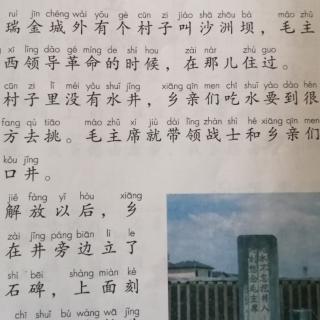 ruì jīn chéng wài yǒu gè cūn zi jiào shā zhōu bà máo zhǔ
瑞金城外有个村子叫沙洲坝，毛主
xī lǐng dǎo gé mìng de shí hou zài nàr zhù guo
西领导革命的时候，在那儿住过。
cūn zi lǐ méi yǒu shuǐ jǐng xiāng qīn men chī shuǐ yào dào hěn
村子里没有水井，乡亲们吃水要到很
fang qù tiāo máo zhǔ xí jiù dài lǐng zhàn shì hé xiāng qīn men
方去挑。毛主席就带领战士和乡亲们
kǒu jǐng
口井。
jiě fàng yǐ hòu xiāng
解放以后，乡
zài jǐng páng biān lì le
在井旁边立了
shí bēi shàng miàn kè
石碑，上面刻
chī shuǐ bú wàng wā jǐng
吃水不忘挖井人
时刻想念毛主席